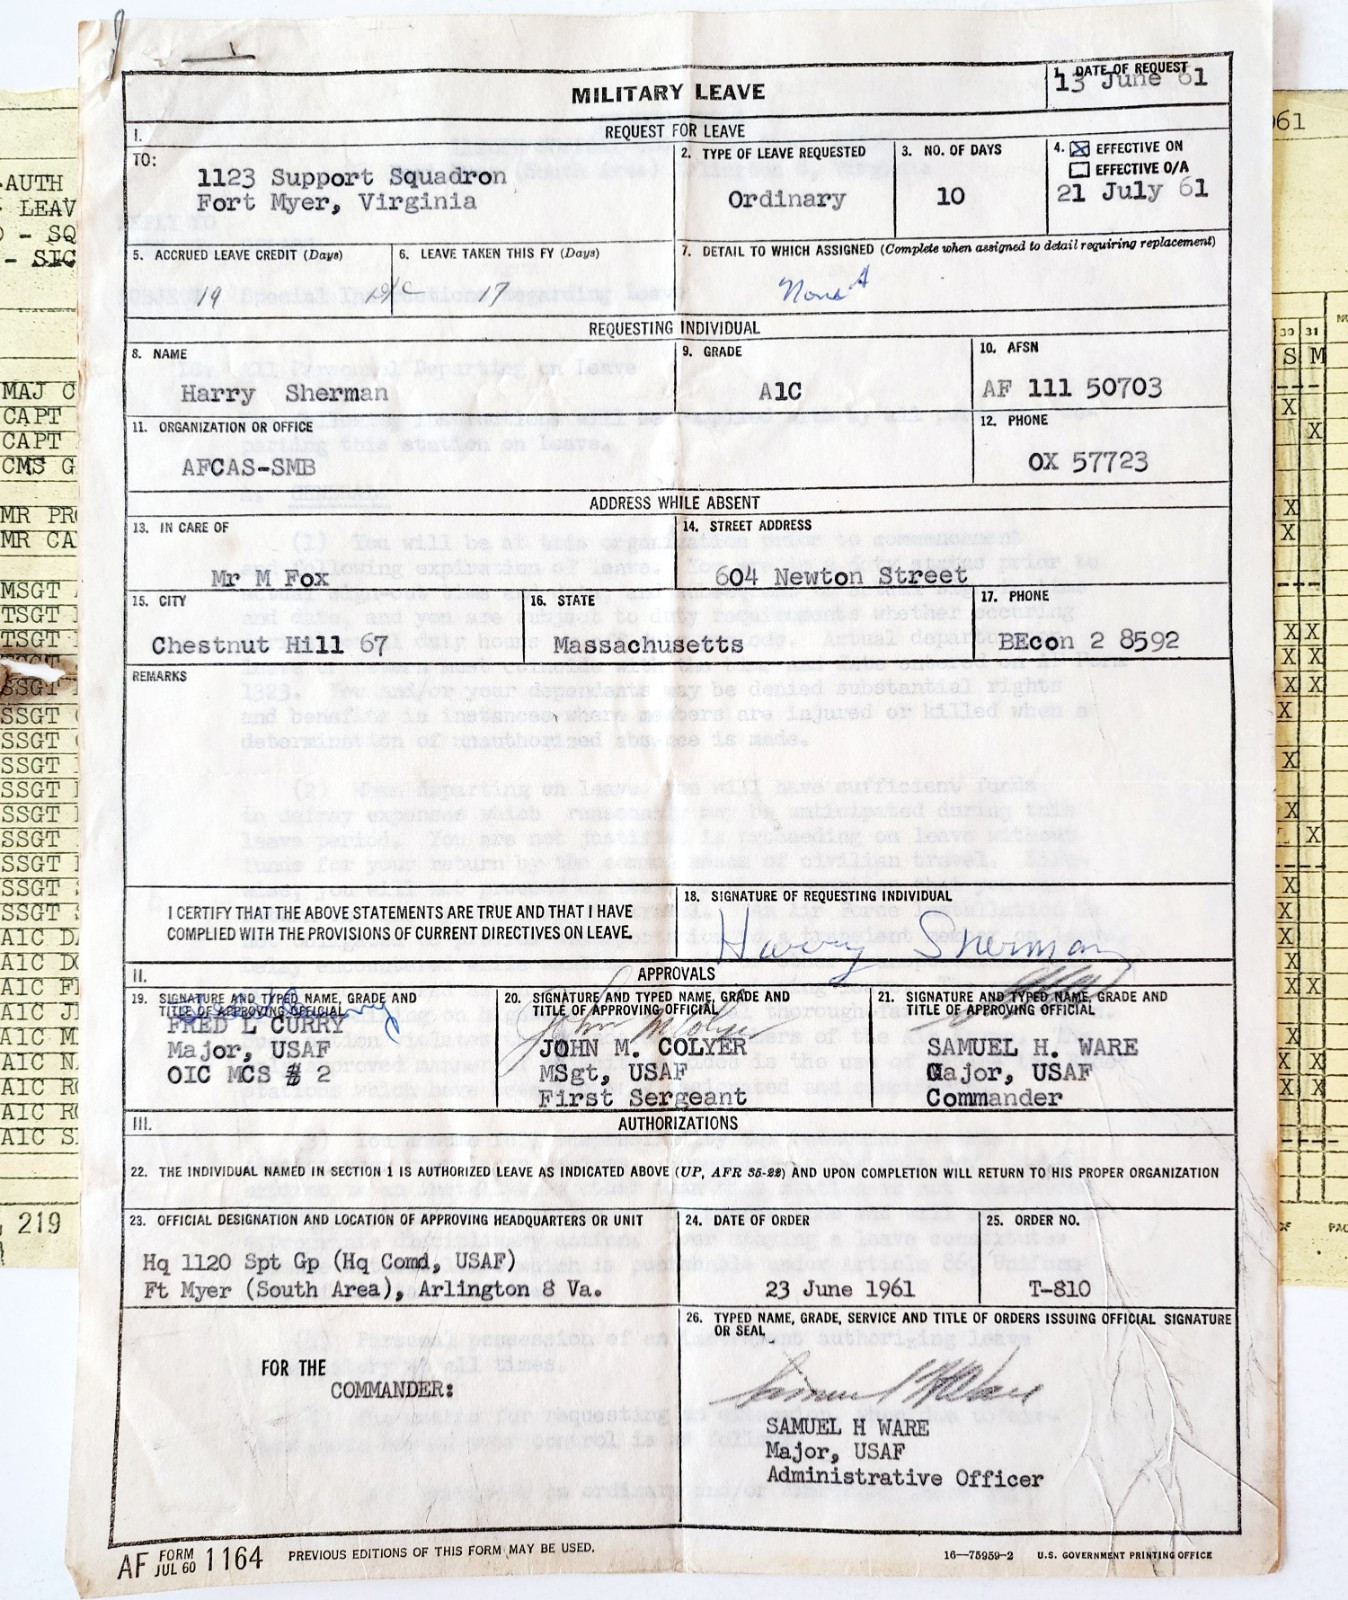 MILITARY LEAVE
1. DATE OF REQUEST
13 June 61
I.
REQUEST FOR LEAVE
TO:
1123 Support Squadron
Fort Myer, Virginia
2. TYPE OF LEAVE REQUESTED
Ordinary
3. NO. OF DAYS
10
4. EFFECTIVE ON
EFFECTIVE O/A
21 July 61
5. ACCRUED LEAVE CREDIT (Days)
19
6. LEAVE TAKEN THIS FY (Days)
17
7. DETAIL TO WHICH ASSIGNED (Complete when assigned to detail requiring replacement)
None
REQUESTING INDIVIDUAL
8. NAME
Harry Sherman
9. GRADE
A1C
10. AFSN
AF 111 50703
11. ORGANIZATION OR OFFICE
AFCAS-SMB
12. PHONE
OX 57723
ADDRESS WHILE ABSENT
13. IN CARE OF
Mr M Fox
14. STREET ADDRESS
604 Newton Street
15. CITY
Chestnut Hill 67
16. STATE
Massachusetts
17. PHONE
BEcon 2 8592
REMARKS
I CERTIFY THAT THE ABOVE STATEMENTS ARE TRUE AND THAT I HAVE
COMPLIED WITH THE PROVISIONS OF CURRENT DIRECTIVES ON LEAVE.
18. SIGNATURE OF REQUESTING INDIVIDUAL
Harry Sherman
II.
APPROVALS
19. SIGNATURE AND TYPED NAME, GRADE AND
TITLE OF APPROVING OFFICIAL
FRED L CURRY
Major, USAF
OIC MCS # 2
20. SIGNATURE AND TYPED NAME, GRADE AND
TITLE OF APPROVING OFFICIAL
John M Colyer
JOHN M. COLYER
MSgt, USAF
First Sergeant
21. SIGNATURE AND TYPED NAME, GRADE AND
TITLE OF APPROVING OFFICIAL
SAMUEL H. WARE
Major, USAF
Commander
III.
AUTHORIZATIONS
22. THE INDIVIDUAL NAMED IN SECTION 1 IS AUTHORIZED LEAVE AS INDICATED ABOVE (UP, AFR 35-22) AND UPON COMPLETION WILL RETURN TO HIS PROPER ORGANIZATION
23. OFFICIAL DESIGNATION AND LOCATION OF APPROVING HEADQUARTERS OR UNIT
Hq 1120 Spt Gp (Hq Comd, USAF)
Ft Myer (South Area), Arlington 8 Va.
24. DATE OF ORDER
23 June 1961
25. ORDER NO.
T-810
FOR THE
COMMANDER:
26. TYPED NAME, GRADE, SERVICE AND TITLE OF ORDERS ISSUING OFFICIAL SIGNATURE
OR SEAL
Samuel H Ware
SAMUEL H WARE
Major, USAF
Administrative Officer
AF FORM JUL 60 1164
PREVIOUS EDITIONS OF THIS FORM MAY BE USED.
16—75959-2 U.S. GOVERNMENT PRINTING OFFICE
AUTH
LEAV
- SQ
- SIC
MAJ C
CAPT
CAPT
CMS G
MR PR
MR CA
MSGT
TSGT
TSGT
SSGT
SSGT
SSGT
SSGT
SSGT
SSGT
SSGT
SSGT
SSGT
A1C D
A1C D
A1C F
A1C J
A1C M
A1C N
A1C R
A1C R
A1C S
219
61
30 31
S M